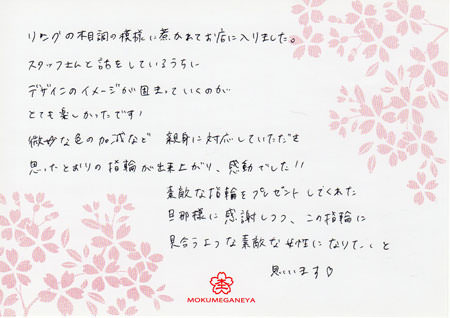 リングの木目調の模様に惹かれてお店に入りました。
スタッフさんと話をしているうちに
デザインのイメージが固まっていくのが
とても楽しかったです！
微妙な色の加減など 親身に対応していただき
思ったとおりの指輪が出来上がり、感動でした!!
素敵な指輪をプレゼントしてくれた
旦那様に感謝しつつ、この指輪に
見合うような素敵な女性になりたいと
思います♡
MOKUMEGANEYA